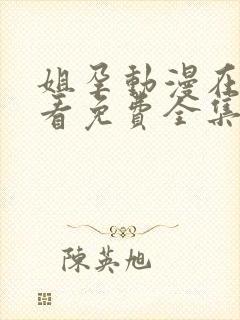 姐孕動漫在
看免費全集
陳英旭